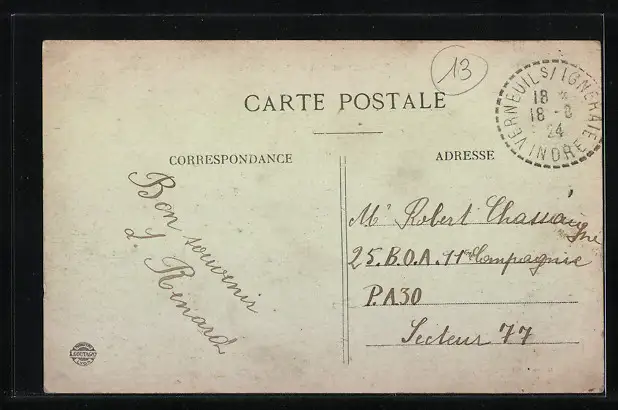 13
VERNEUIL S/ IGNERAIE
18
18 - 8
24
INDRE
CARTE POSTALE
CORRESPONDANCE
ADRESSE
Bon souvenir
L. Renard
Mr Robert Chassaigne
25.B.O.A. 11e Compagnie
P.A30
Secteur 77